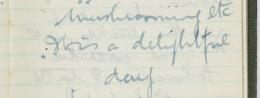 mushrooming etc
It is a delightful
day